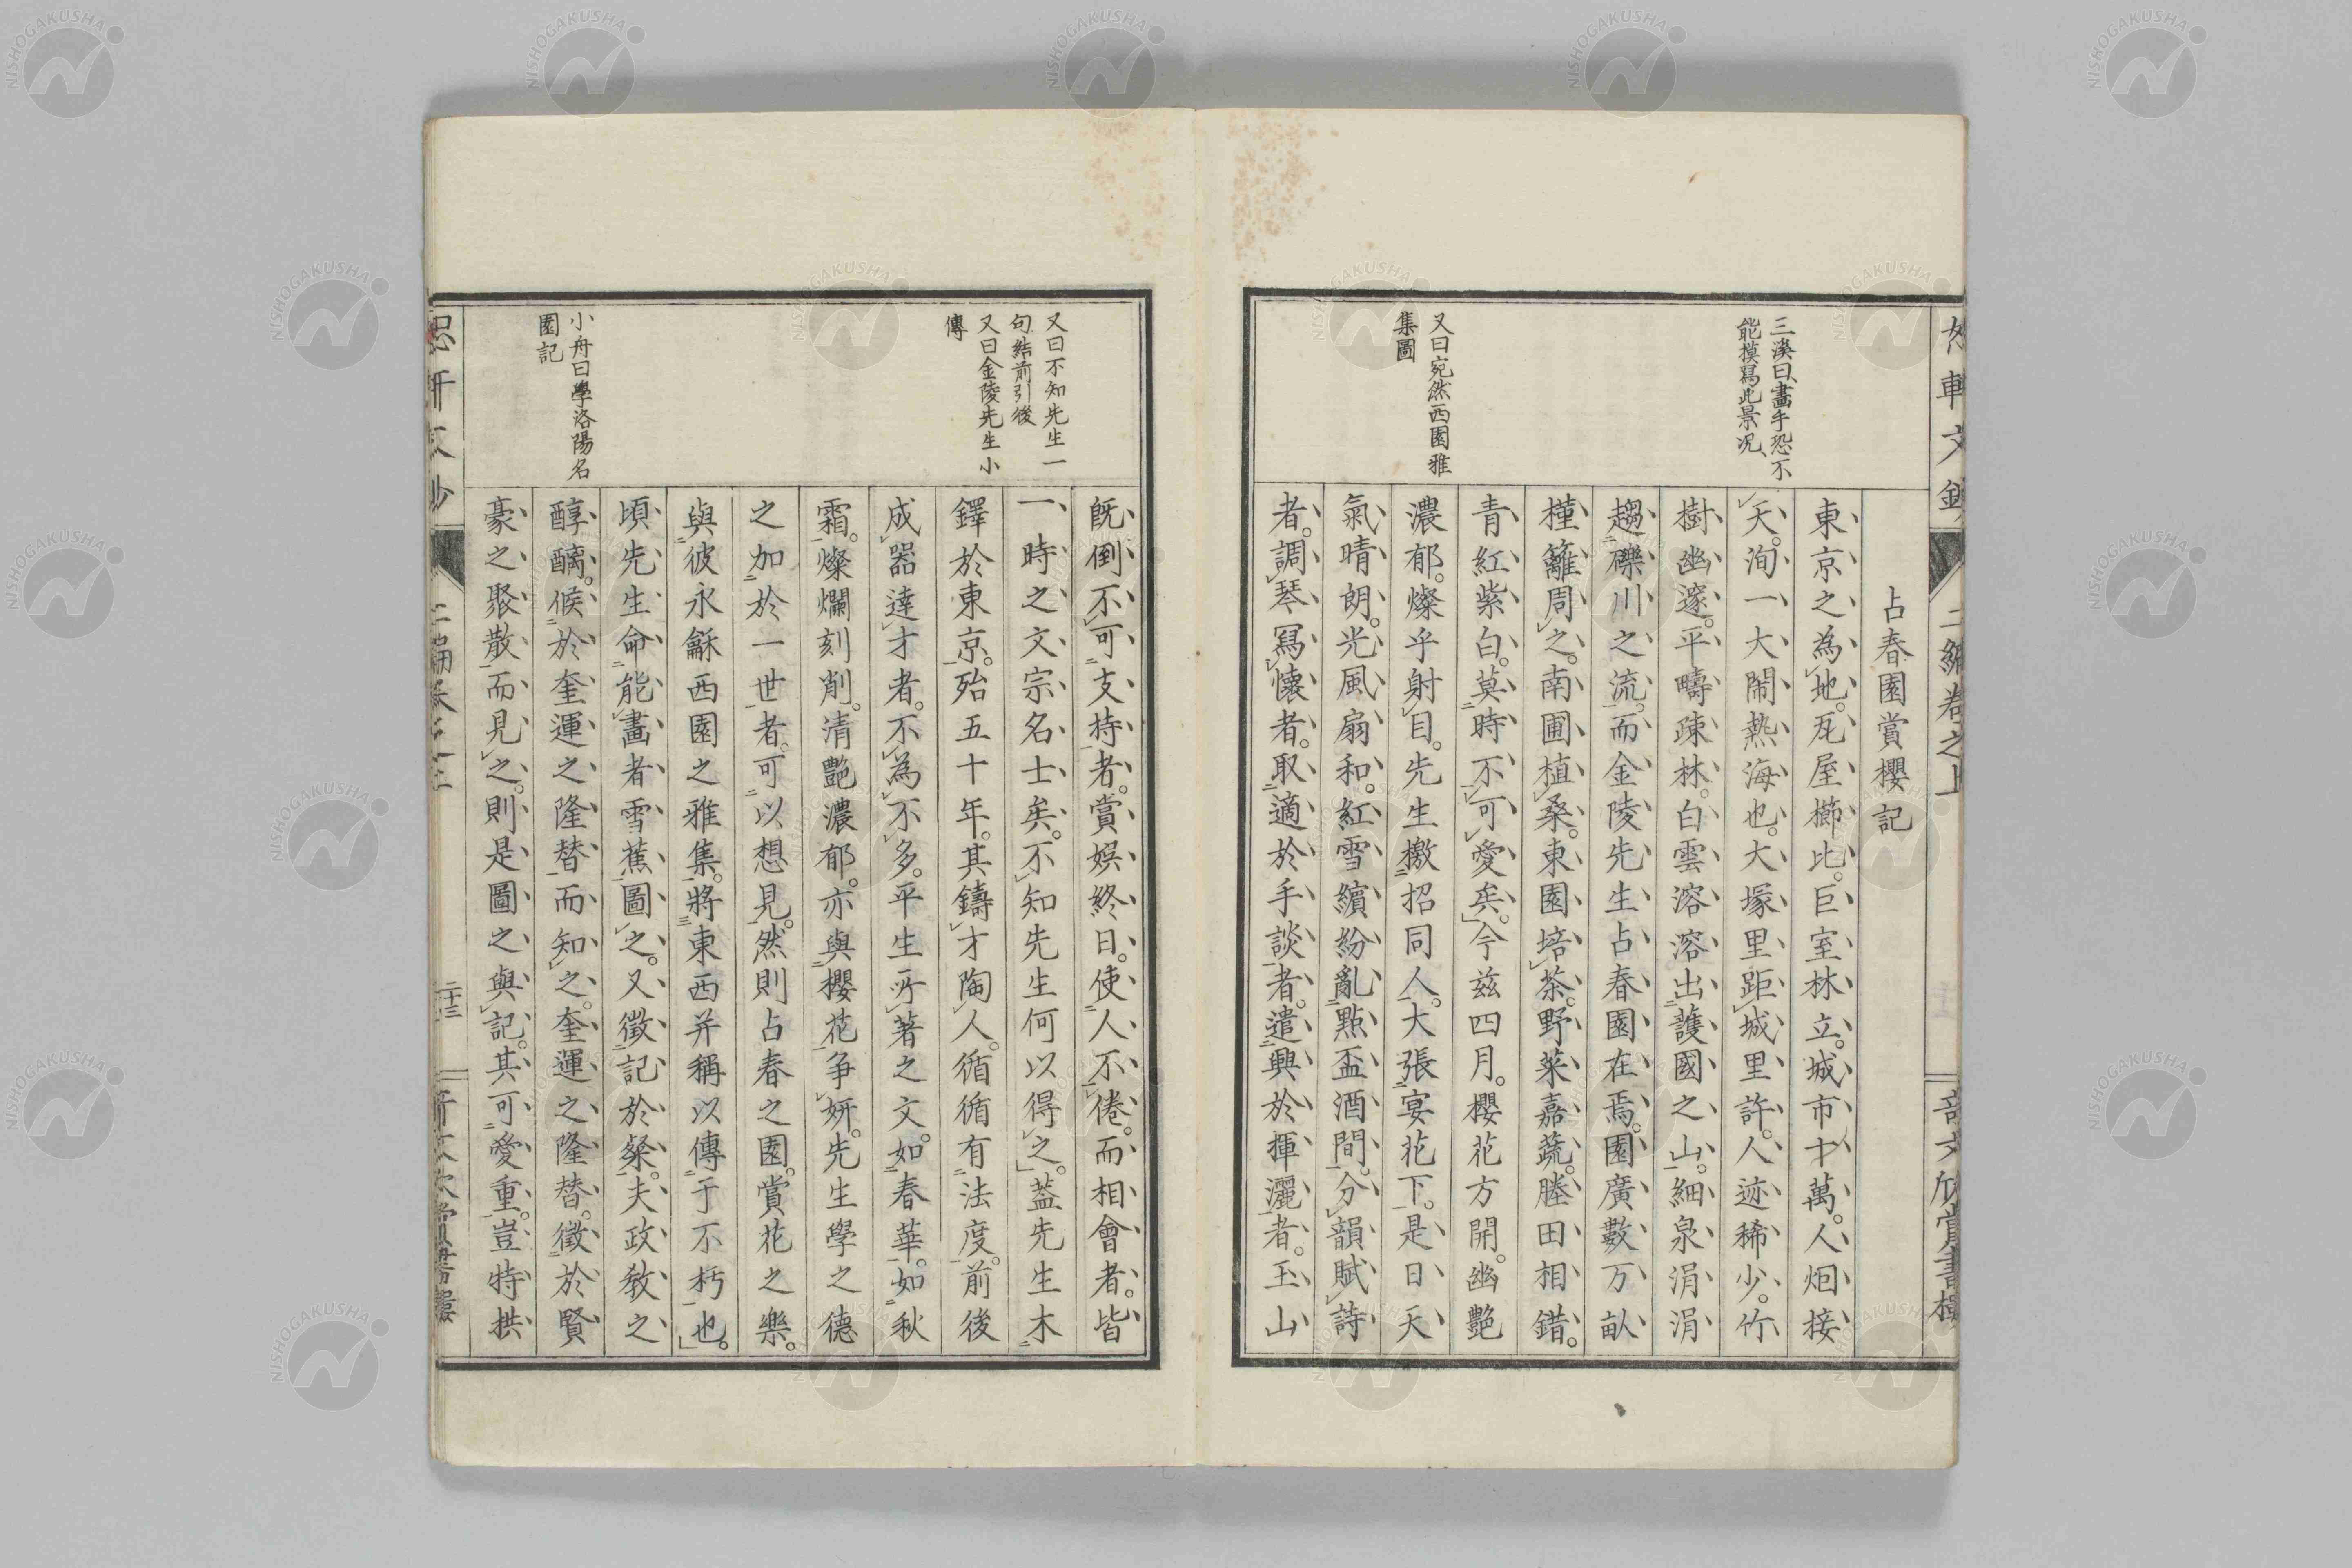 三溪曰畫手恐不
能摸寫此景况
又曰宛然西園雅
集圖
占春園賞櫻記
東京之為地。瓦屋櫛比。巨室林立。城市才萬。人烟接
天。洵一大鬧熱海也。大塚里距城里許。人迹稀少。竹
樹幽邃。平疇疎林。白雲溶溶出護國之山。細泉涓涓
趨礫川之流。而金陵先生占春園在焉。園廣數万畝
槿籬周之。南圃植桑。東園培茶。野菜嘉蔬。塍田相錯。
青紅紫白。莫時不可愛矣。今茲四月。櫻花方開。幽艷
濃郁。燦乎射目。先生檄招同人。大張宴花下。是日天
氣晴朗。光風扇和。紅雪繽紛亂點盃酒間。分韻賦詩
者。調琴寫懷者。取適於手談者。遣興於揮灑者。玉山
又曰不知先生一
句結前引後
又曰金陵先生小
傳
小舟曰學洛陽名
園記
既倒不可支持者。賞娯終日。使人不倦。而相會者。皆
一時之文宗名士矣。不知先生何以得之。蓋先生木
鐸於東京。殆五十年。其鑄才陶人。循循有法度。前後
成器達才者。不為不多。平生所著之文。如春華。如秋
霜。燦爛刻削。清艷濃郁。亦與櫻花争妍。先生學之德
之加於一世者。可以想見。然則占春之園。賞花之樂。
與彼永龢西園之雅集。將東西并稱以傳于不朽也。
頃先生命能畫者雪蕉圖之。又徵記於粲。夫政教之
醇醨。候於奎運之隆替而知之。奎運之隆替。徵於賢
豪之聚散而見之。則是圖之與記。其可愛重。豈特拱
二十三